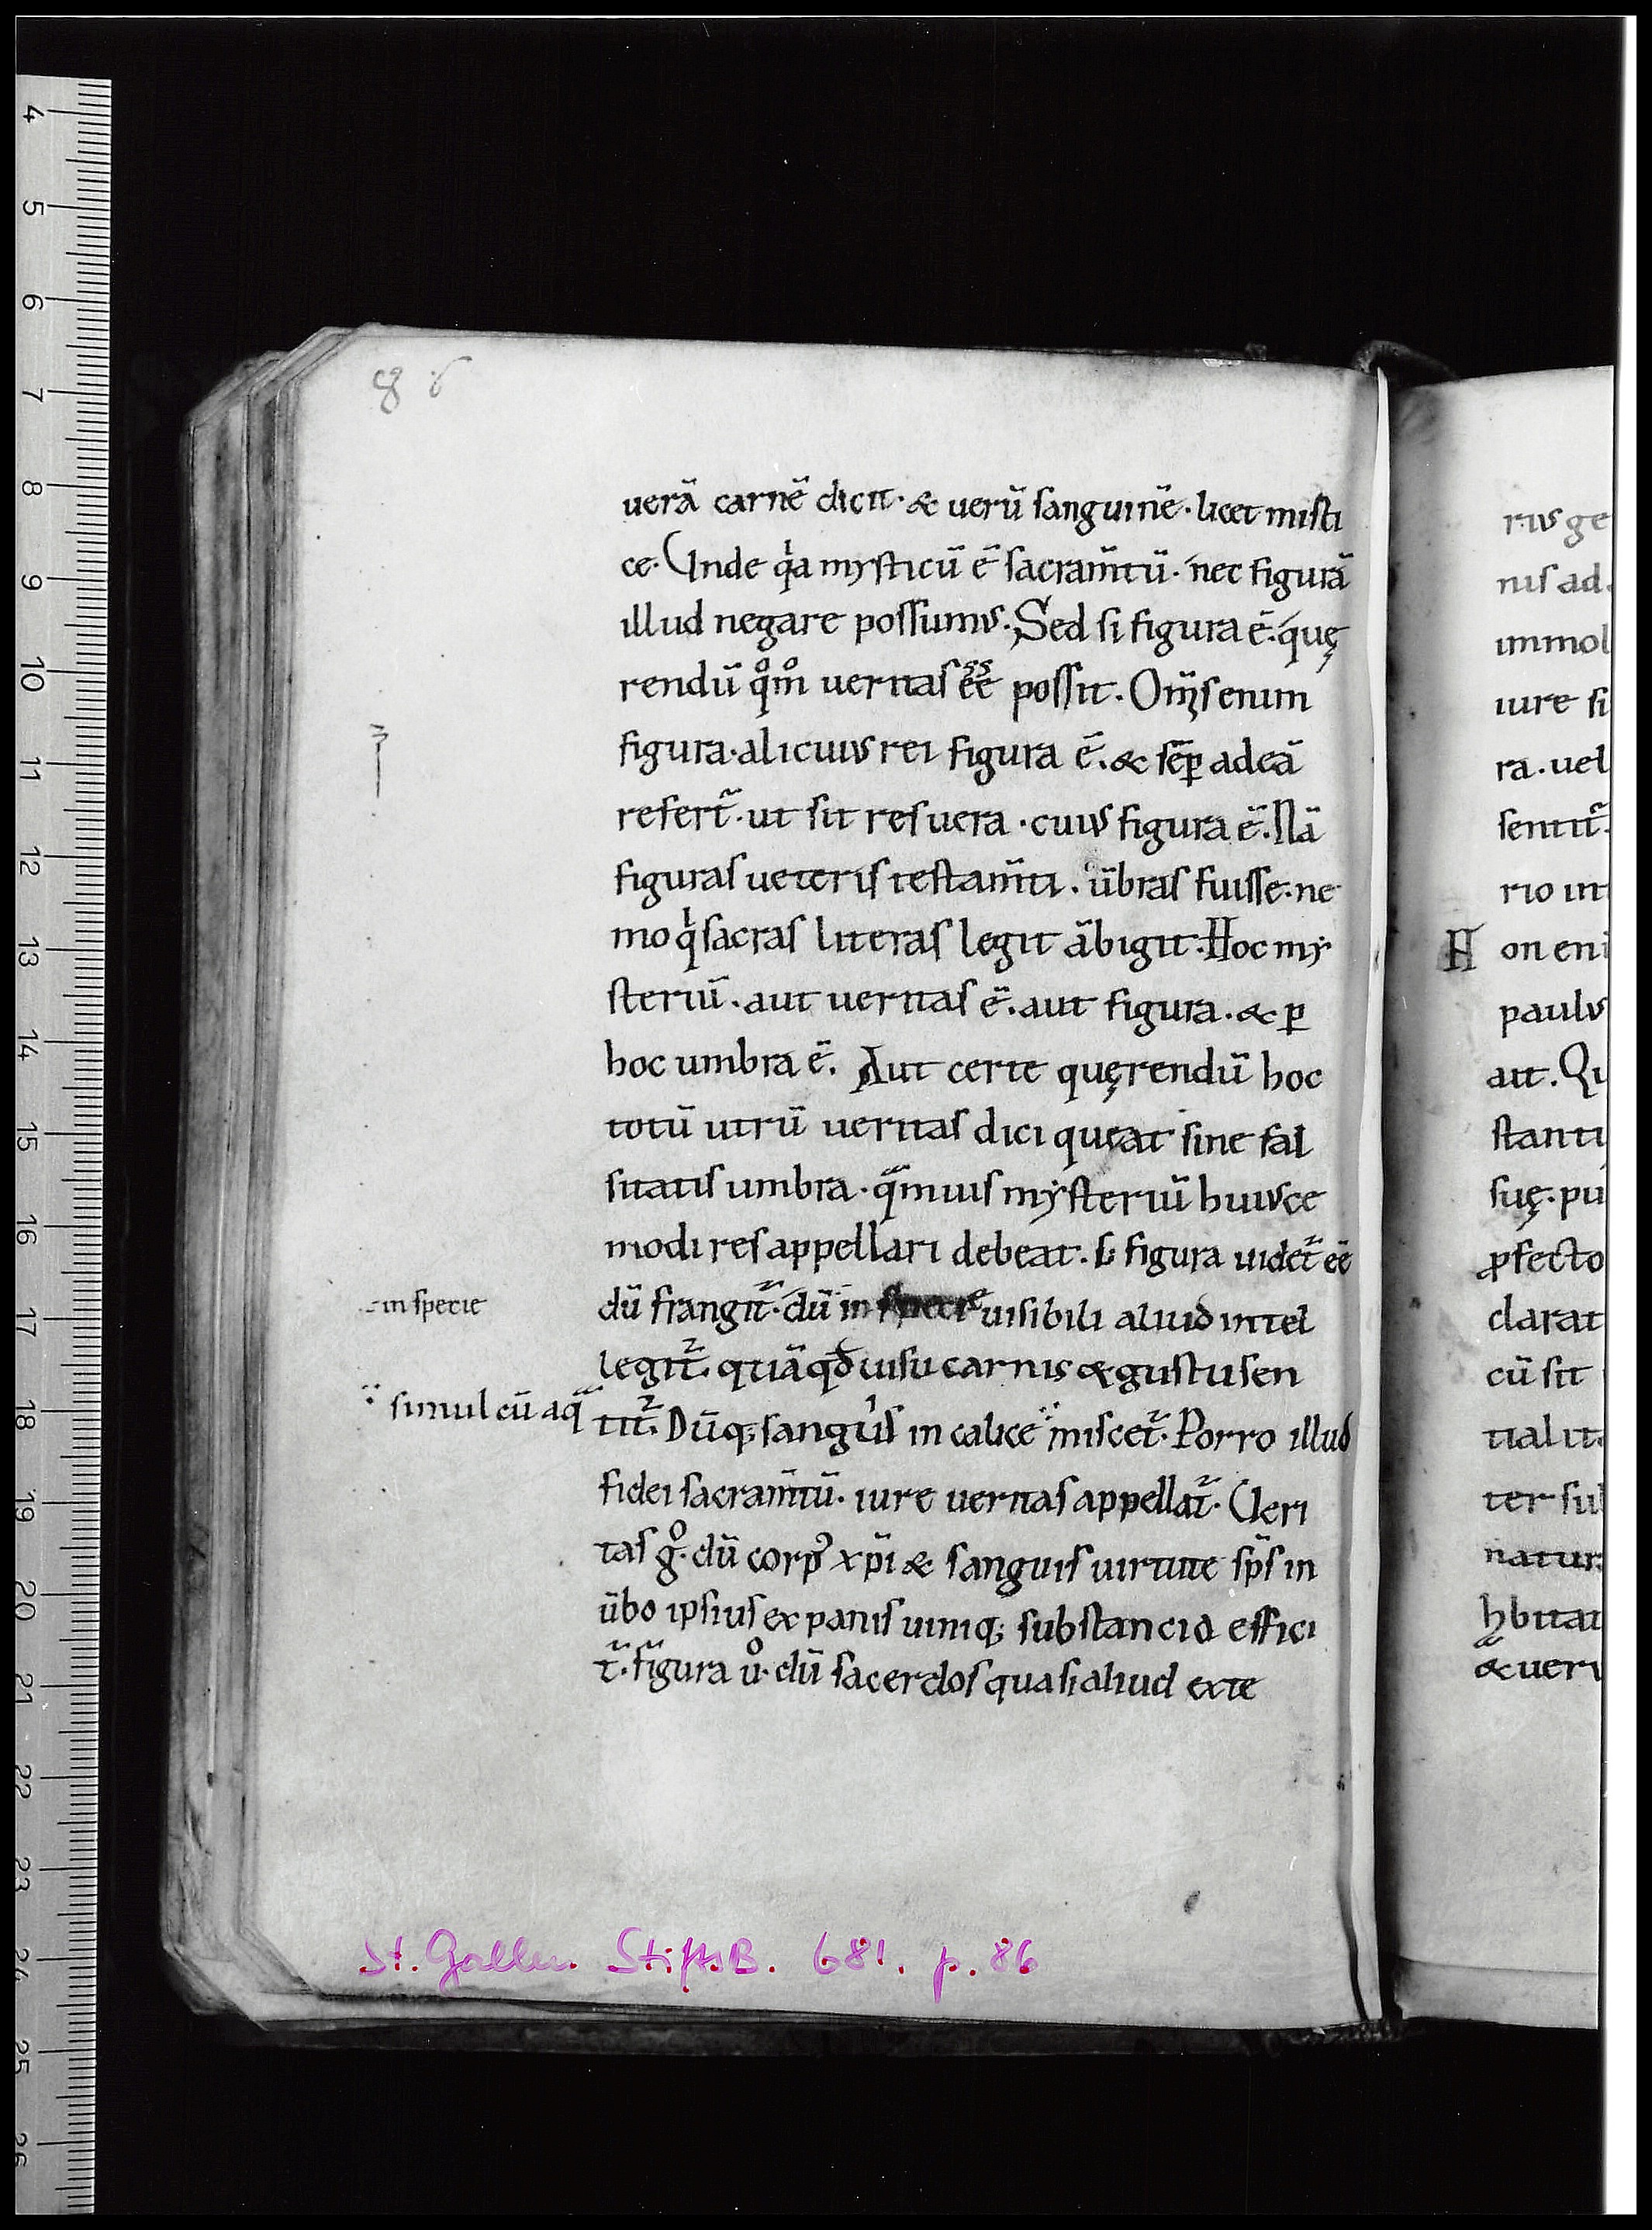 86
uerā carnē dicit· & uerū sanguinē· licet misti
ce· Unde qͥa mysticū ē sacram̄tū· nec figurā
illud negare possumus· Sed si figura ē· quę
rendū qͦm̊ ueritas ēē possit· Om̄s enim
figura· alicuius rei figura ē· & sēp̱ ad eā
refert᷑· ut sit res uera· cuius figura ē· Nā
figuras ueteris testam̄ti· ūbras fuisse· ne
mo qͥ sacras literas legit ābigit· Hoc my
steriū· aut ueritas ē· aut figura· & ꝑ
hoc umbra ē· Aut certe quęrendū hoc
totū utrū ueritas dici queat sine fal
sitatis umbra· qͣmuis mysteriū huiusce
modi res appellari debeat· ꝉ figura uidet᷑ ēē
in specie
dū frangit᷑· dū in specie uisibili aliud intel
legit᷑· quā qđ uisu carnis & gustu sen
simul cū aqͣ
tit᷑· Dūq; sanguis in calice miscet᷑· Porro illud
fidei sacram̄tū· iure ueritas appellat᷑· Ueri
tas gͦ· dū corpꝰ xp̄i & sanguis uirtute sp̄s in
ūbo ipsius ex panis uiniq; substancia effici
t᷑· figura uͦ· dū sacerdos quasi aliud exte
St. Gallen StiftsB. 681. p. 86
rius ge
nis ad
immol
iure si
ra· uel
sentit᷑·
rio in
N on eni
paulus
ait· Qu
stanti
suę· pu
ꝓfecto
clarat
cū sit
tialit
ter su
natur
hͣbitat
& ueri
4
5
6
7
8
9
10
11
12
13
14
15
16
17
18
19
20
21
22
23
24
25
26